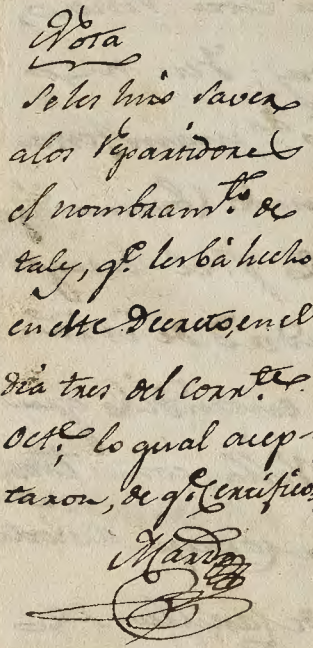 Nota
Seles hizo saver
alos Repartidores
el nombramto. de
tales, qe. lesbá hecho
en este Decreto, en el
dia tres del corrte.
Octe., lo qual acep-
taron, de qe. Certifico